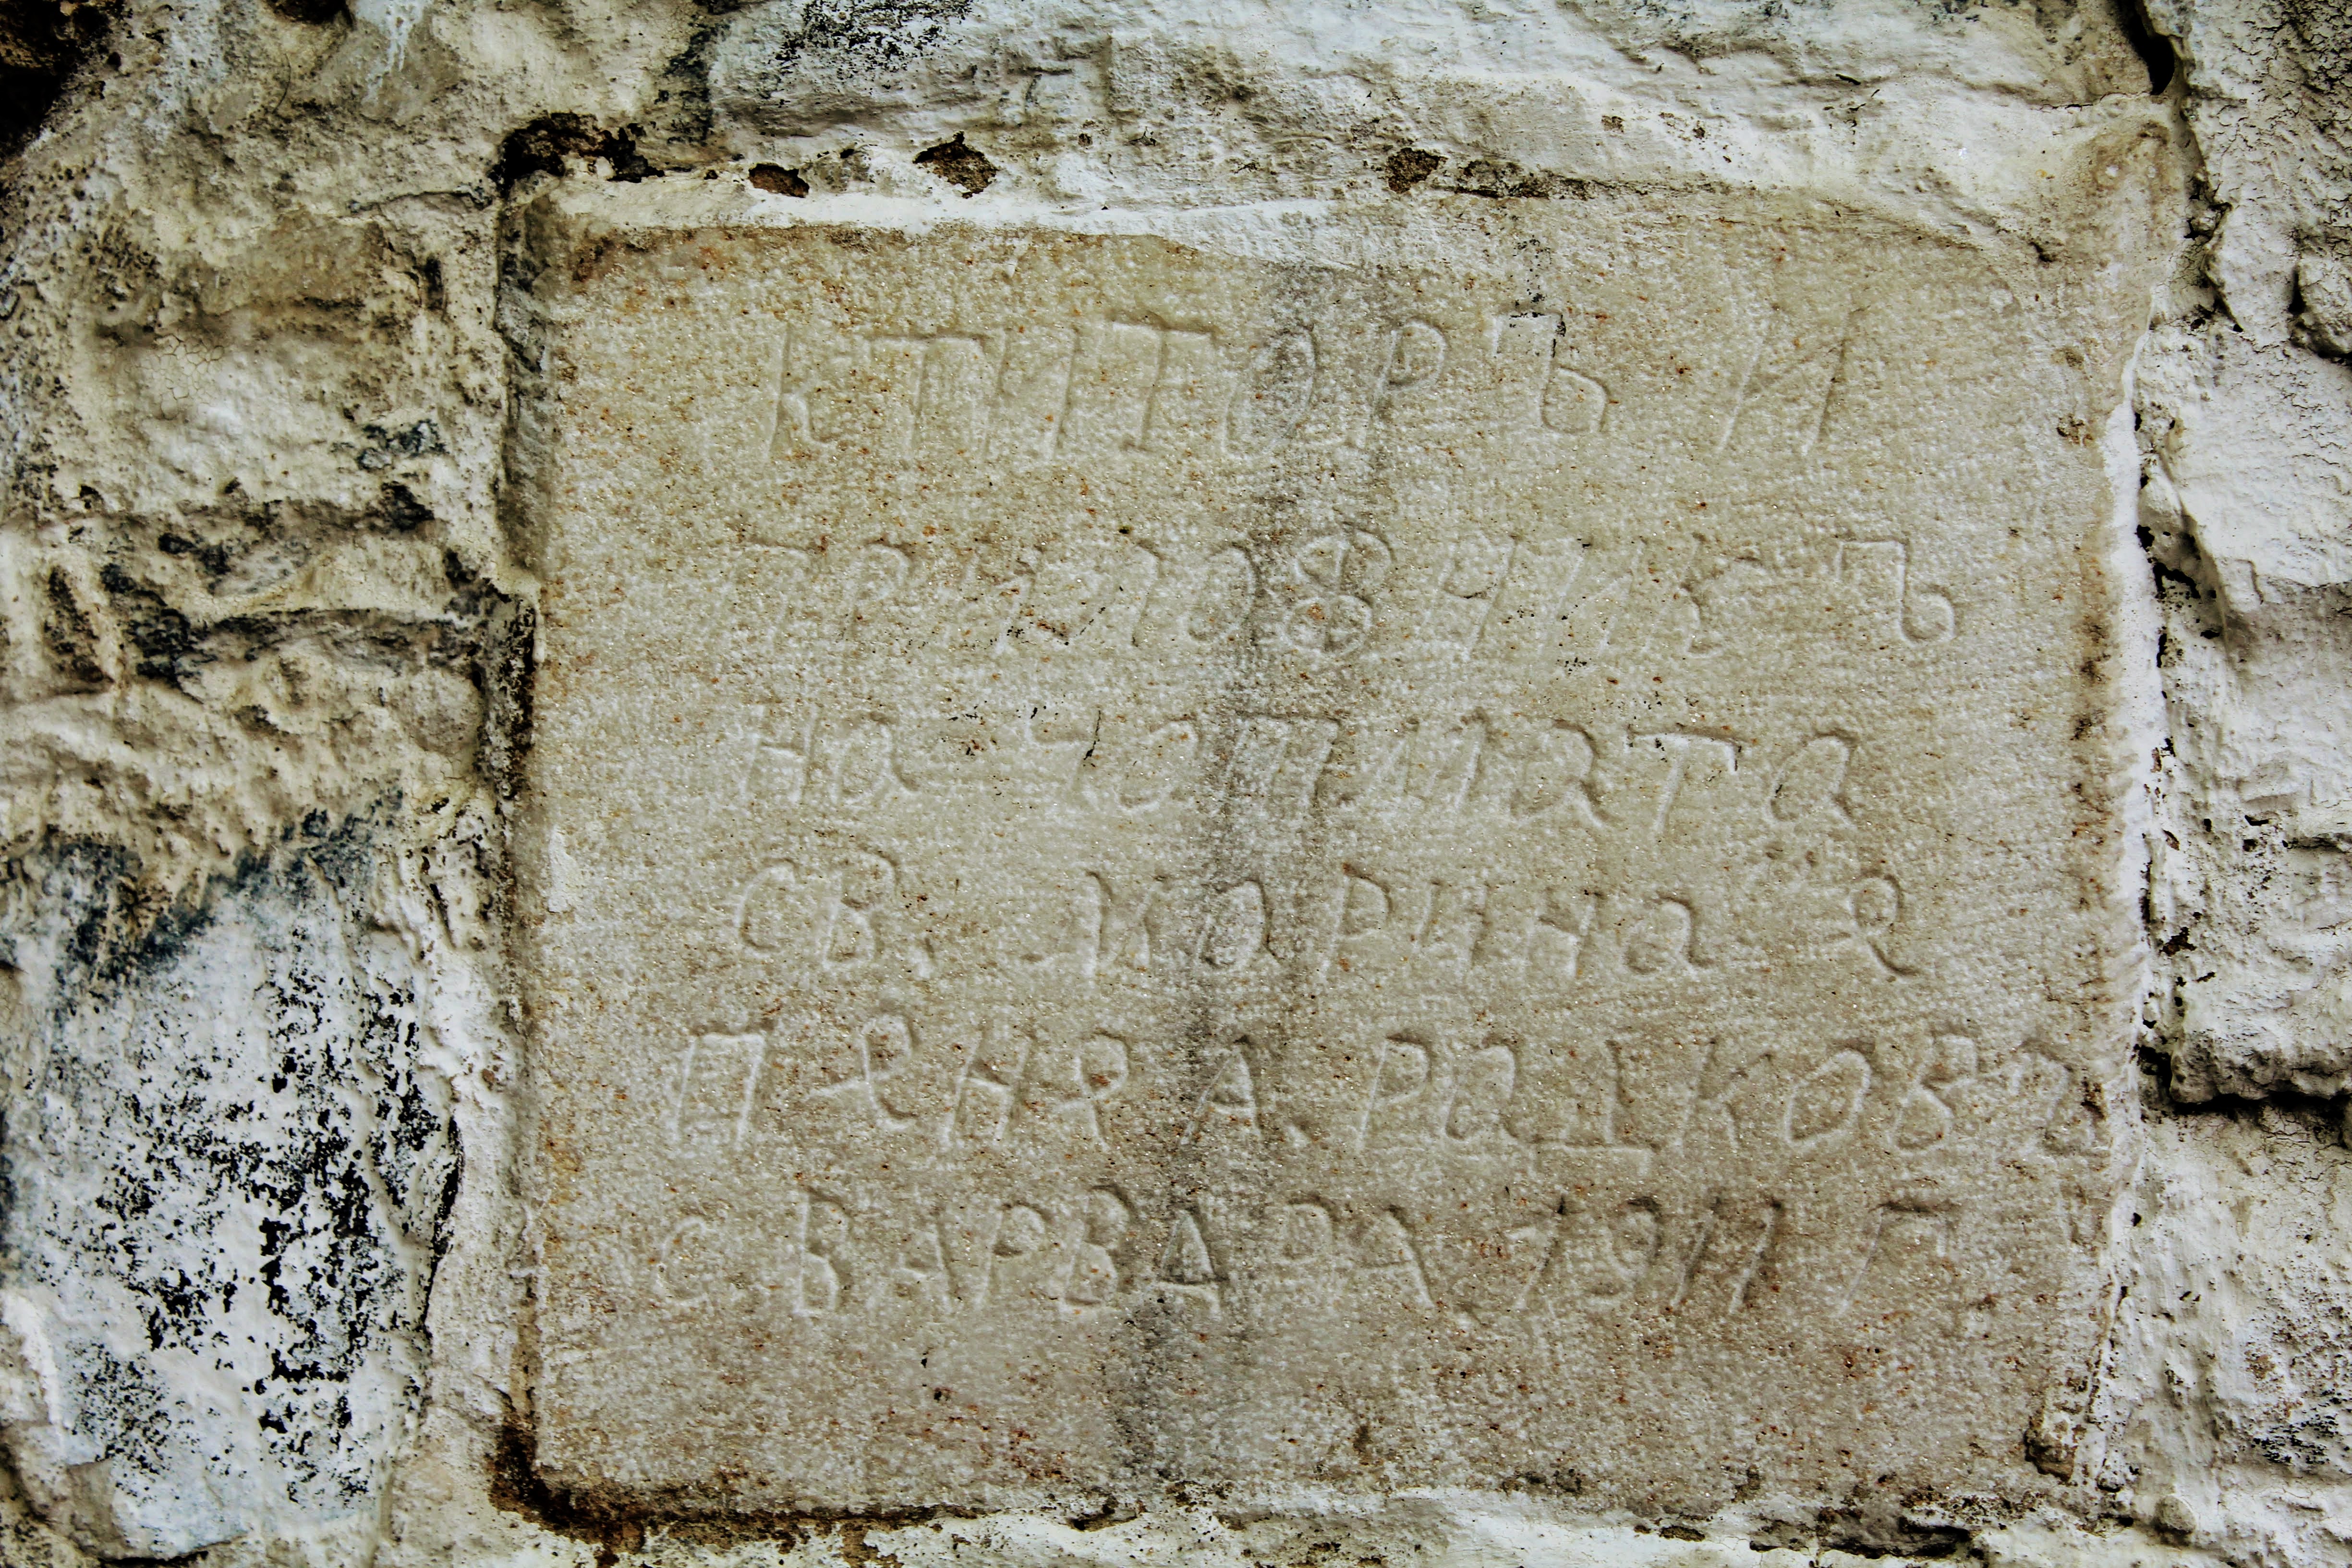 КТИТОРЪ И
ПРИЛОЖНИКЪ
На ЧОПМаТа
СВ. МаРИНа е
ПеНе А. РаДКОВа
С. ВАРВАРА 1911 Г